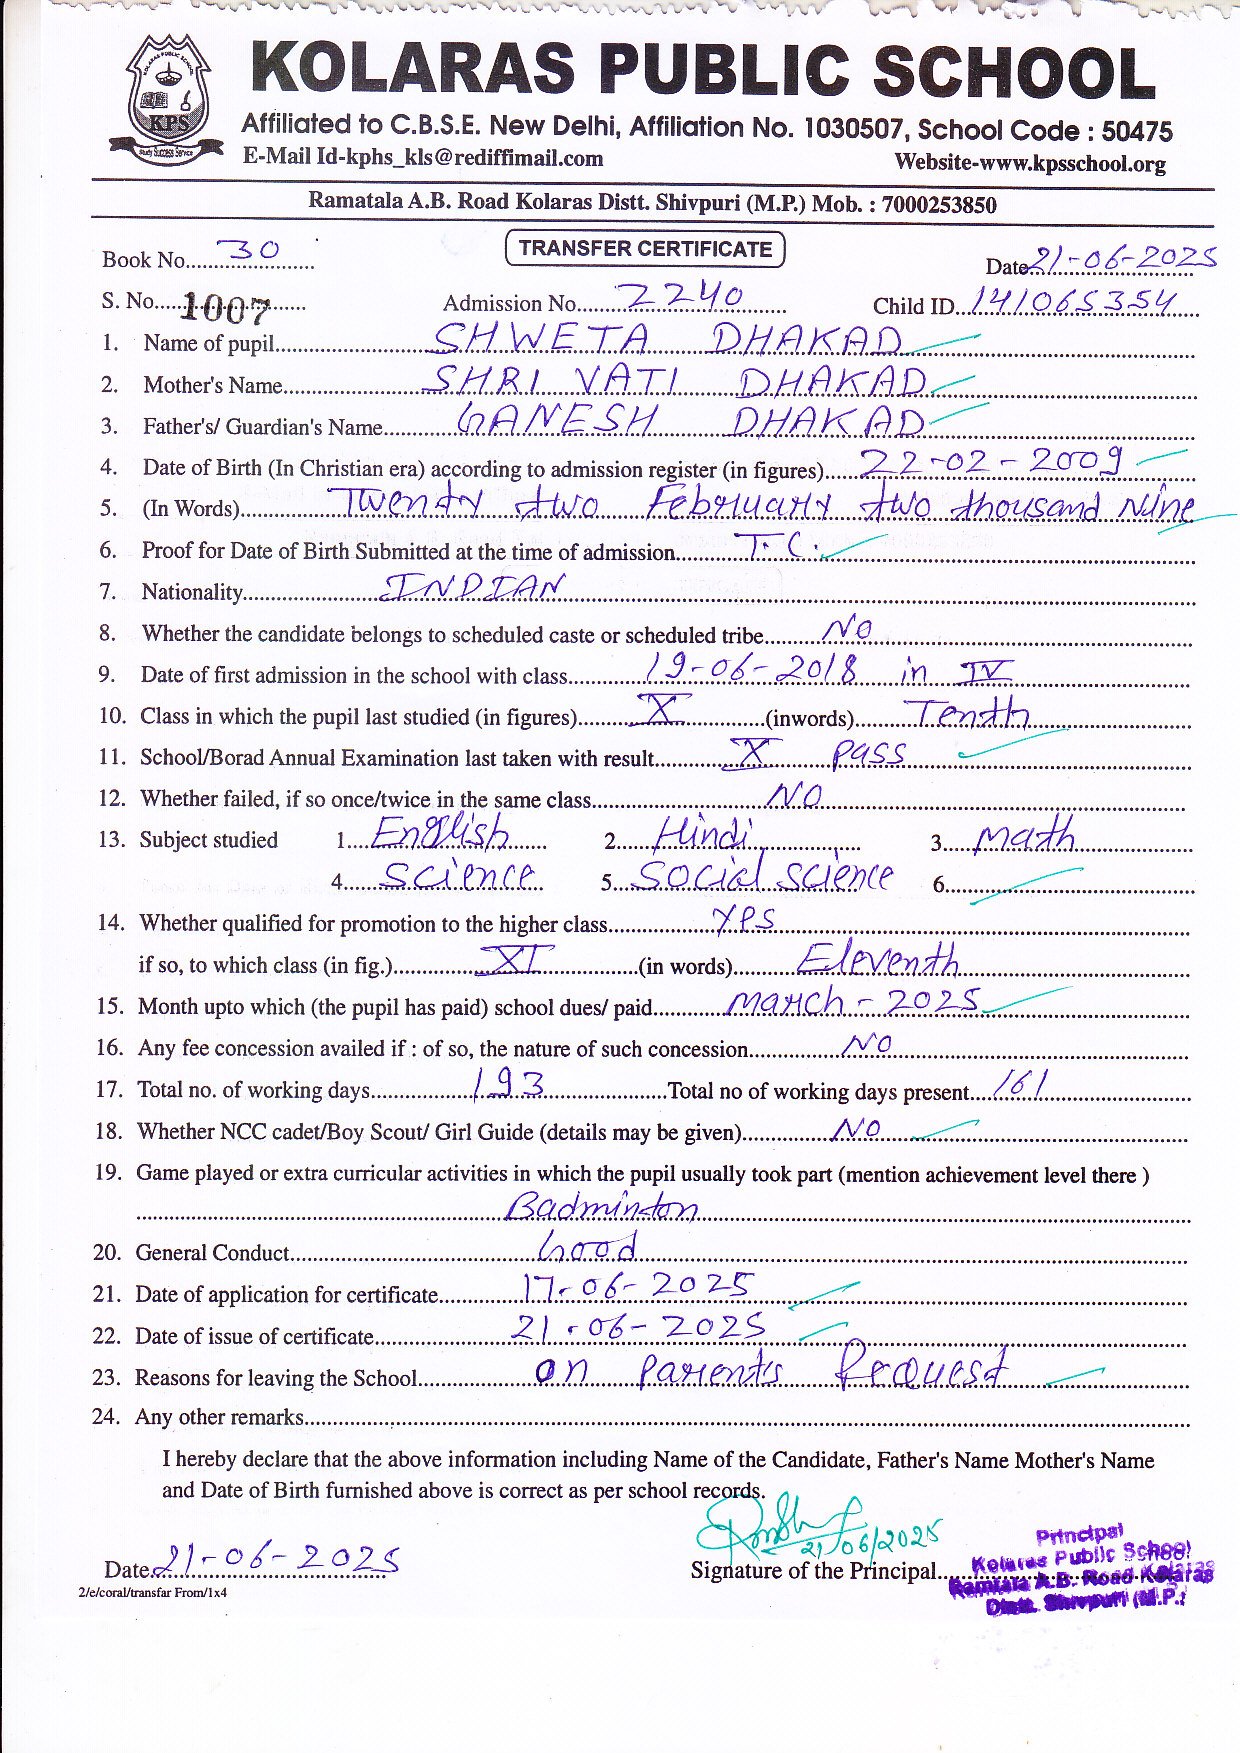 KOLARAS PUBLIC SCHOOL
KOLARAS PUBLIC SCHOOL
KPS
Study Success Service
Affiliated to C.B.S.E. New Delhi, Affiliation No. 1030507, School Code : 50475
E-Mail Id-kphs_kls@rediffimail.com Website-www.kpsschool.org
Ramatala A.B. Road Kolaras Distt. Shivpuri (M.P.) Mob. : 7000253850
Book No. 30 TRANSFER CERTIFICATE Date 21-06-2025
S. No. 1007 Admission No. 2240 Child ID. 141065354
1. Name of pupil SHWETA DHAKAD
2. Mother's Name SHRI VATI DHAKAD
3. Father's/ Guardian's Name GANESH DHAKAD
4. Date of Birth (In Christian era) according to admission register (in figures) 22-02-2009
5. (In Words) Twenty two February two thousand Nine
6. Proof for Date of Birth Submitted at the time of admission T.C.
7. Nationality INDIAN
8. Whether the candidate belongs to scheduled caste or scheduled tribe NO
9. Date of first admission in the school with class 19-06-2018 in IV
10. Class in which the pupil last studied (in figures) X (inwords) Tenth
11. School/Borad Annual Examination last taken with result X pass
12. Whether failed, if so once/twice in the same class NO
13. Subject studied 1 English 2 Hindi 3 Math
4 Science 5 Social Science 6
14. Whether qualified for promotion to the higher class Yes
if so, to which class (in fig.) XI (in words) Eleventh
15. Month upto which (the pupil has paid) school dues/ paid March - 2025
16. Any fee concession availed if : of so, the nature of such concession NO
17. Total no. of working days 193 Total no of working days present 161
18. Whether NCC cadet/Boy Scout/ Girl Guide (details may be given) NO
19. Game played or extra curricular activities in which the pupil usually took part (mention achievement level there )
Badminton
20. General Conduct Good
21. Date of application for certificate 17-06-2025
22. Date of issue of certificate 21-06-2025
23. Reasons for leaving the School on Parent's Request
24. Any other remarks
I hereby declare that the above information including Name of the Candidate, Father's Name Mother's Name
and Date of Birth furnished above is correct as per school records.
21/06/2025
Date 21-06-2025 Signature of the Principal
Principal
Kolaras Public School
Ramtala A.B. Road Kolaras
Distt. Shivpuri (M.P.)
2/e/coral/transfar From/1x4